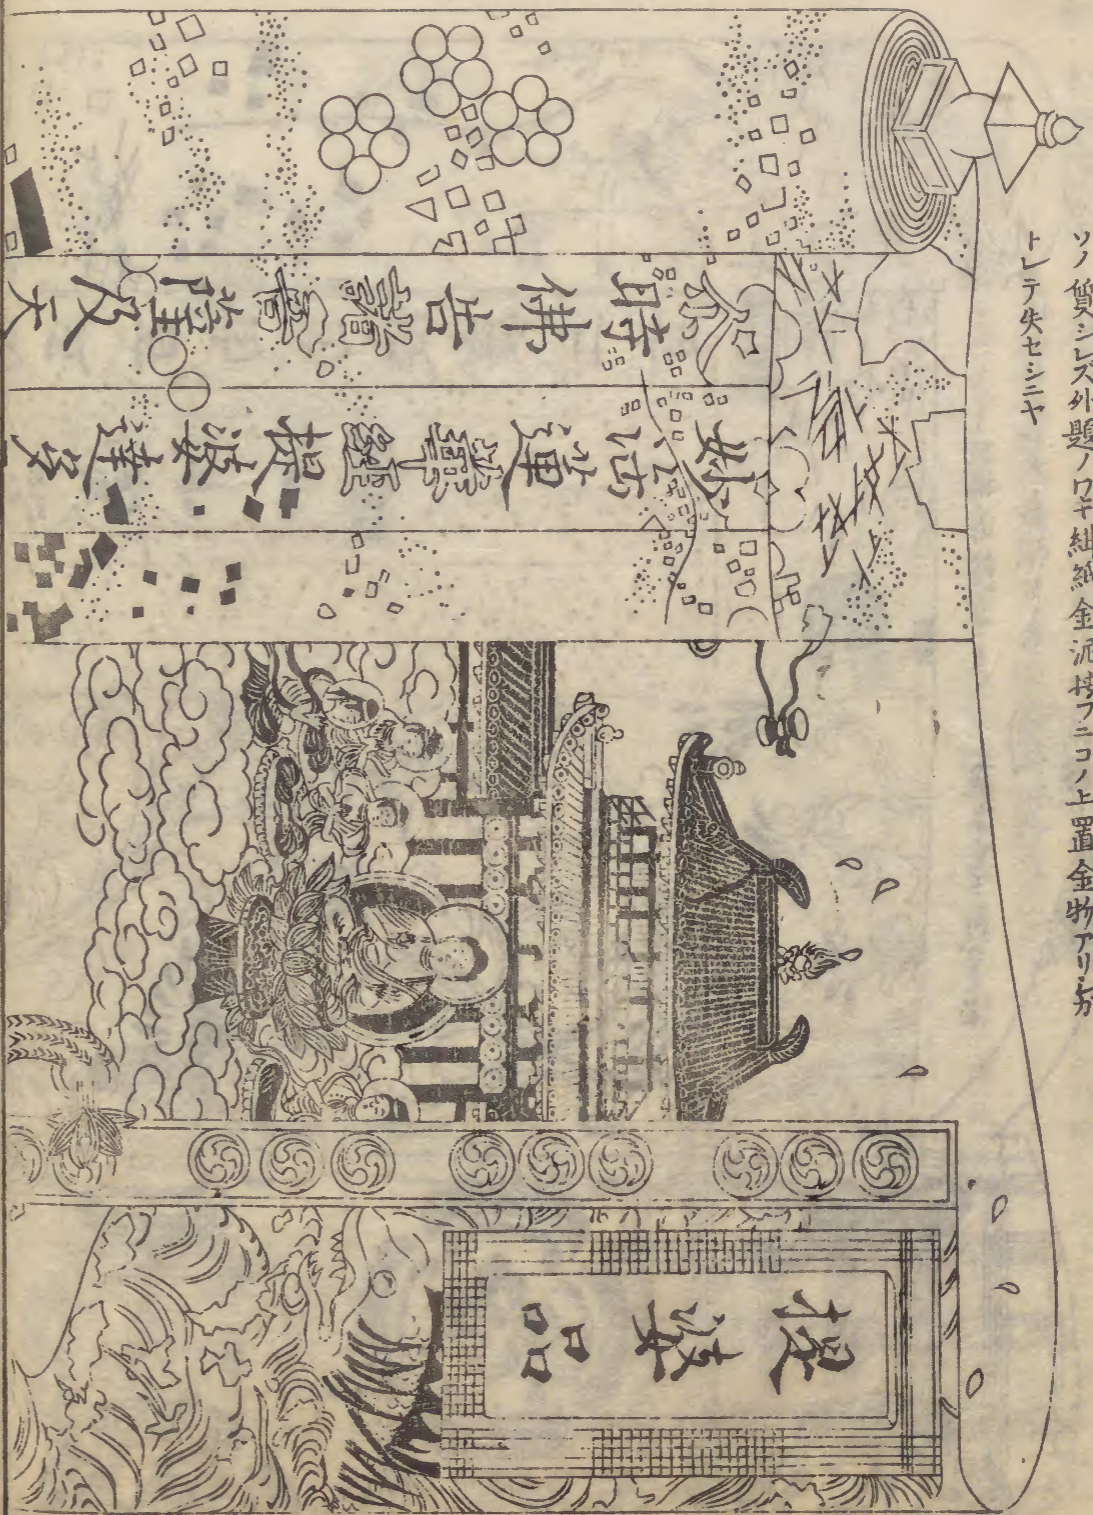 ソノ質シレズ外題ノワキ紺紙金泥フニコノ上置金物アリシガ
トレテ失セシニヤ
提婆品
妙法蓮華經提婆達多
尓時佛告諸菩薩及天